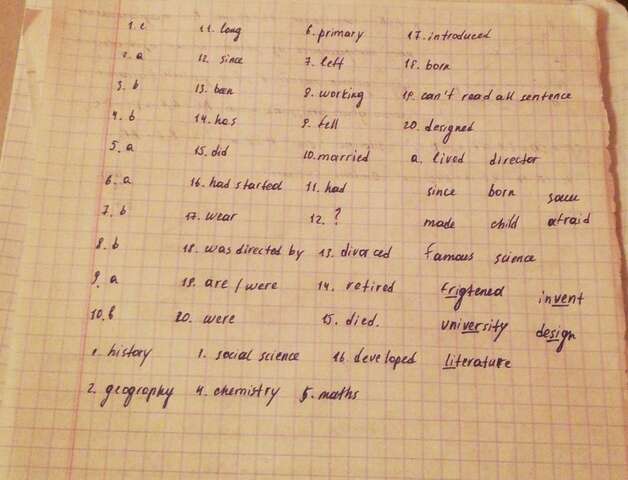 1. c 11. long 6. primary 17. introduced
2. a 12. since 7. left 18. born
3. b 13. been 8. working 19. can't read all sentence
4. b 14. has 9. fell 20. designed
5. a 15. did 10. married a. lived director
6. a 16. had started 11. had since born saw
7. b 17. wear 12. ? made child afraid
8. b 18. was directed by 13. divorced famous science
9. a 19. are / were 14. retired frigtened invent
10. b 20. were 15. died. university design
1. history 1. social science 16. developed literature
2. geography 4. chemistry 5. maths